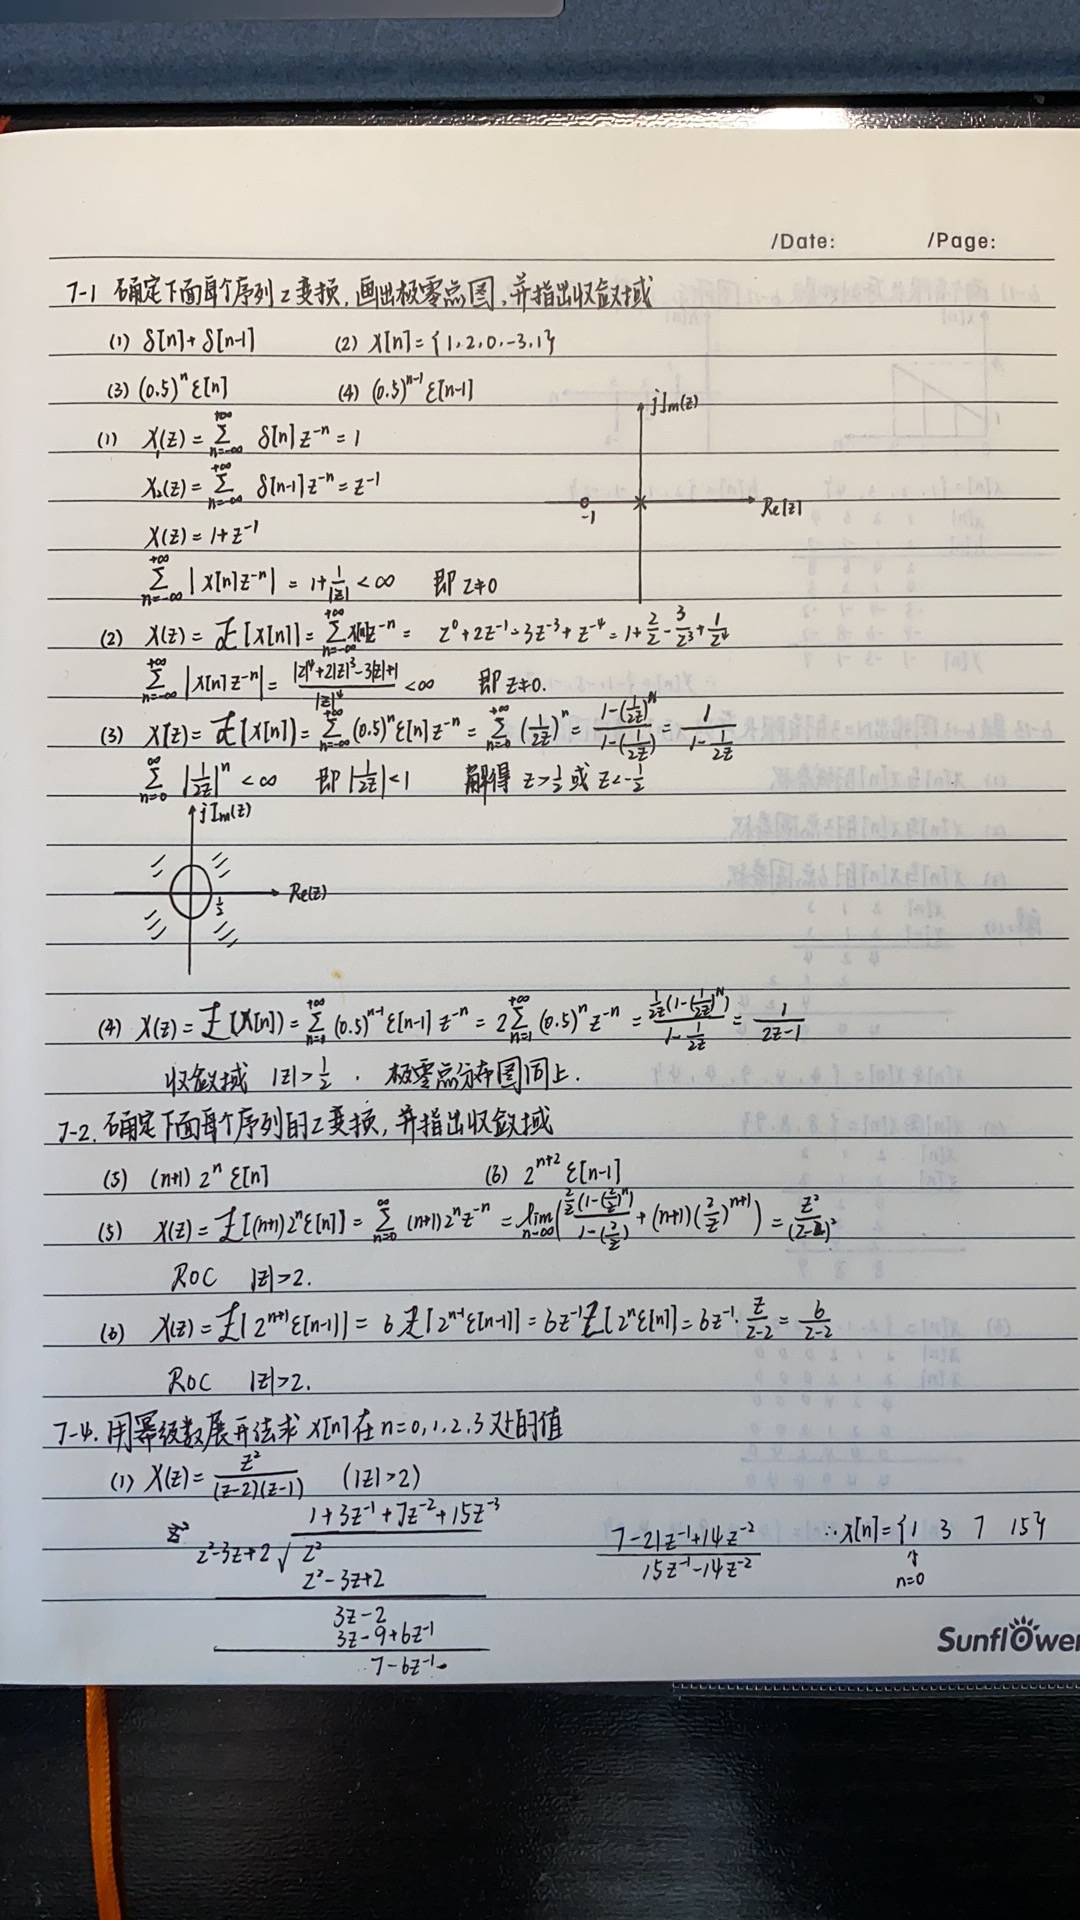 /Date: /Page:
7-1 确定下面每个序列z变换,画出极零点图,并指出收敛域
(1) δ[n]+δ[n-1] (2) x[n]={1,2,0,-3,1}
(3) (0.5)^n ε[n] (4) (0.5)^{n-1} ε[n-1]
(1) X₁(z)=∑_{n=-∞}^{+∞} δ[n]z^{-n}=1
jIm(z)
X₂(z)=∑_{n=-∞}^{+∞} δ[n-1]z^{-n}=z^{-1}
-1 Re[z]
X(z)=1+z^{-1}
∑_{n=-∞}^{+∞} |x[n]z^{-n}| = 1+1/|z| <∞ 即 z≠0
(2) X(z)=Z[x[n]]=∑_{n=-∞}^{+∞} x[n]z^{-n}= z^0+2z^{-1}-3z^{-3}+z^{-4}=1+2/z-3/z^3+1/z^4
∑_{n=-∞}^{+∞} |x[n]z^{-n}|=(|z|^4+2|z|^3-3|z|+1)/|z|^4 <∞ 即 z≠0.
(3) X[z)=Z[x[n])=∑_{n=-∞}^{+∞} (0.5)^n ε[n]z^{-n}=∑_{n=0}^{+∞} (1/2z)^n=(1-(1/2z)^N)/(1-(1/2z))=1/(1-1/2z)
∑_{n=0}^{∞} |1/2z|^n <∞ 即|1/2z|<1 解得 z>1/2或 z<-1/2
jIm(z)
Re(z)
1/2
(4) X(z)=Z(x[n])=∑_{n=1}^{+∞} (0.5)^{n-1} ε[n-1] z^{-n}=2∑_{n=1}^{+∞} (0.5)^n z^{-n}=(1/2z(1-(1/2z)^N))/(1-1/2z)=1/(2z-1)
收敛域 |z|>1/2. 极零点分布图同上.
7-2. 确定下面每个序列的z变换,并指出收敛域
(5) (n+1)2^n ε[n] (6) 2^{n+2} ε[n-1]
(5) X(z)=Z[(n+1)2^n ε[n]]=∑_{n=0}^{∞} (n+1)2^n z^{-n}=lim_{n→∞}((2/z(1-(2/z)^n))/(1-(2/z))+(n+1)(2/z)^{n+1})=z^2/(z-2)^2
ROC |z|>2.
(6) X(z)=Z[2^{n+1}ε[n-1]]=6Z[2^{n-1}ε[n-1]]=6z^{-1}Z[2^n ε[n]]=6z^{-1}·z/(z-2)=6/(z-2)
ROC |z|>2.
7-4. 用幂级数展开法求 x[n]在 n=0,1,2,3处的值
(1) X(z)=z^2/((z-2)(z-1)) (|z|>2)
1+3z^{-1}+7z^{-2}+15z^{-3}
z^2-3z+2 √ z^2
z^2-3z+2
3z-2
3z-9+6z^{-1}
7-6z^{-1}
7-21z^{-1}+14z^{-2}
15z^{-1}-14z^{-2}
∴x[n]={1 3 7 15}
↑
n=0
Sunflower